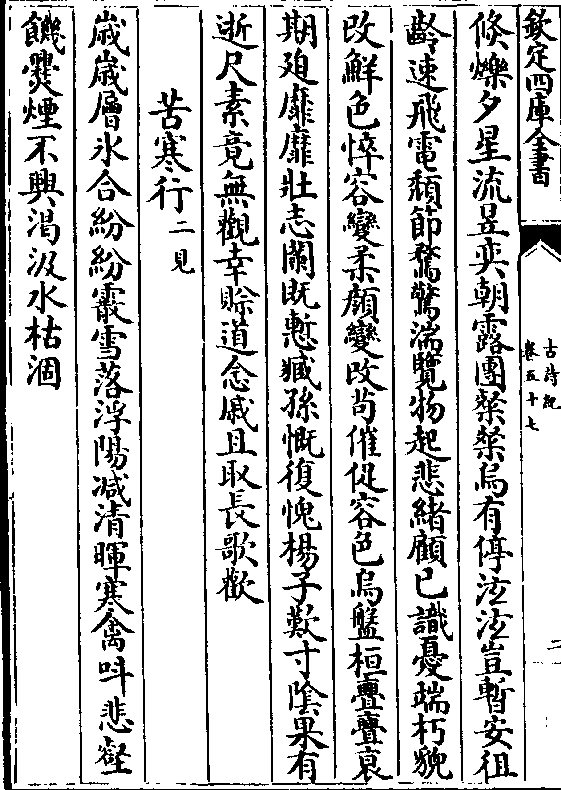 欽定四庫全書
古詩紀
卷五十七
二
倏爍夕星流昱奕朝露團粲粲烏有停泫泫豈暫安徂
齡速飛電頽節騖驚湍覽物起悲緒顧已識憂端朽貌
改鮮色悴容變柔顔變改茍催促容色烏盤桓亹亹衰
期廹靡靡壯志闌既慙臧孫慨復愧楊子歎寸隂果有
逝尺素竟無觀幸賒道念戚且取長歌歡
苦寒行二見
嵗嵗層氷合紛紛霰雪落浮陽減清暉寒禽呌悲壑
饑爨煙不興渴汲水枯涸